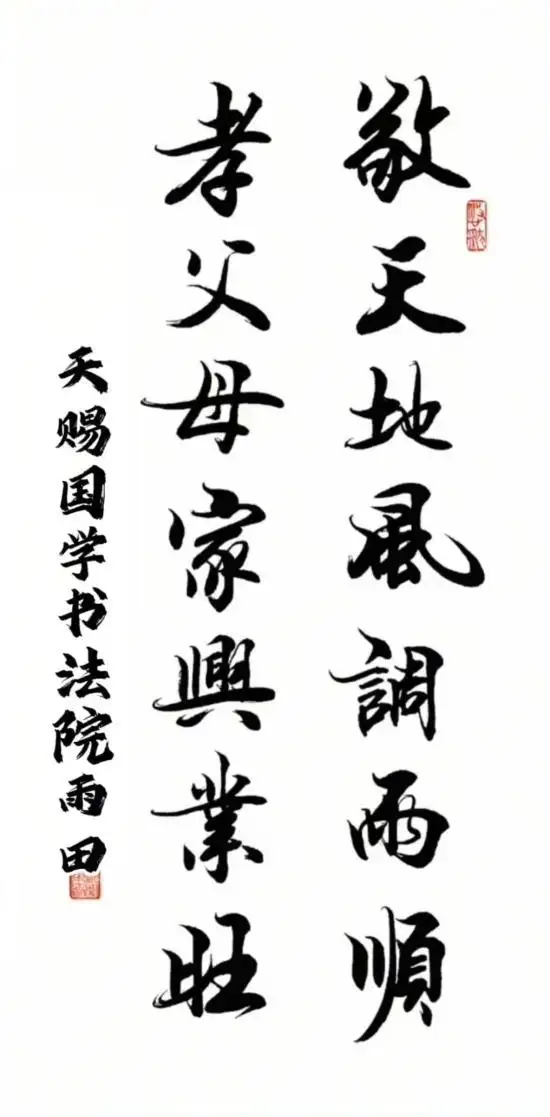 敬天地風調雨順
孝父母家興業旺
天赐国学书法院雨田